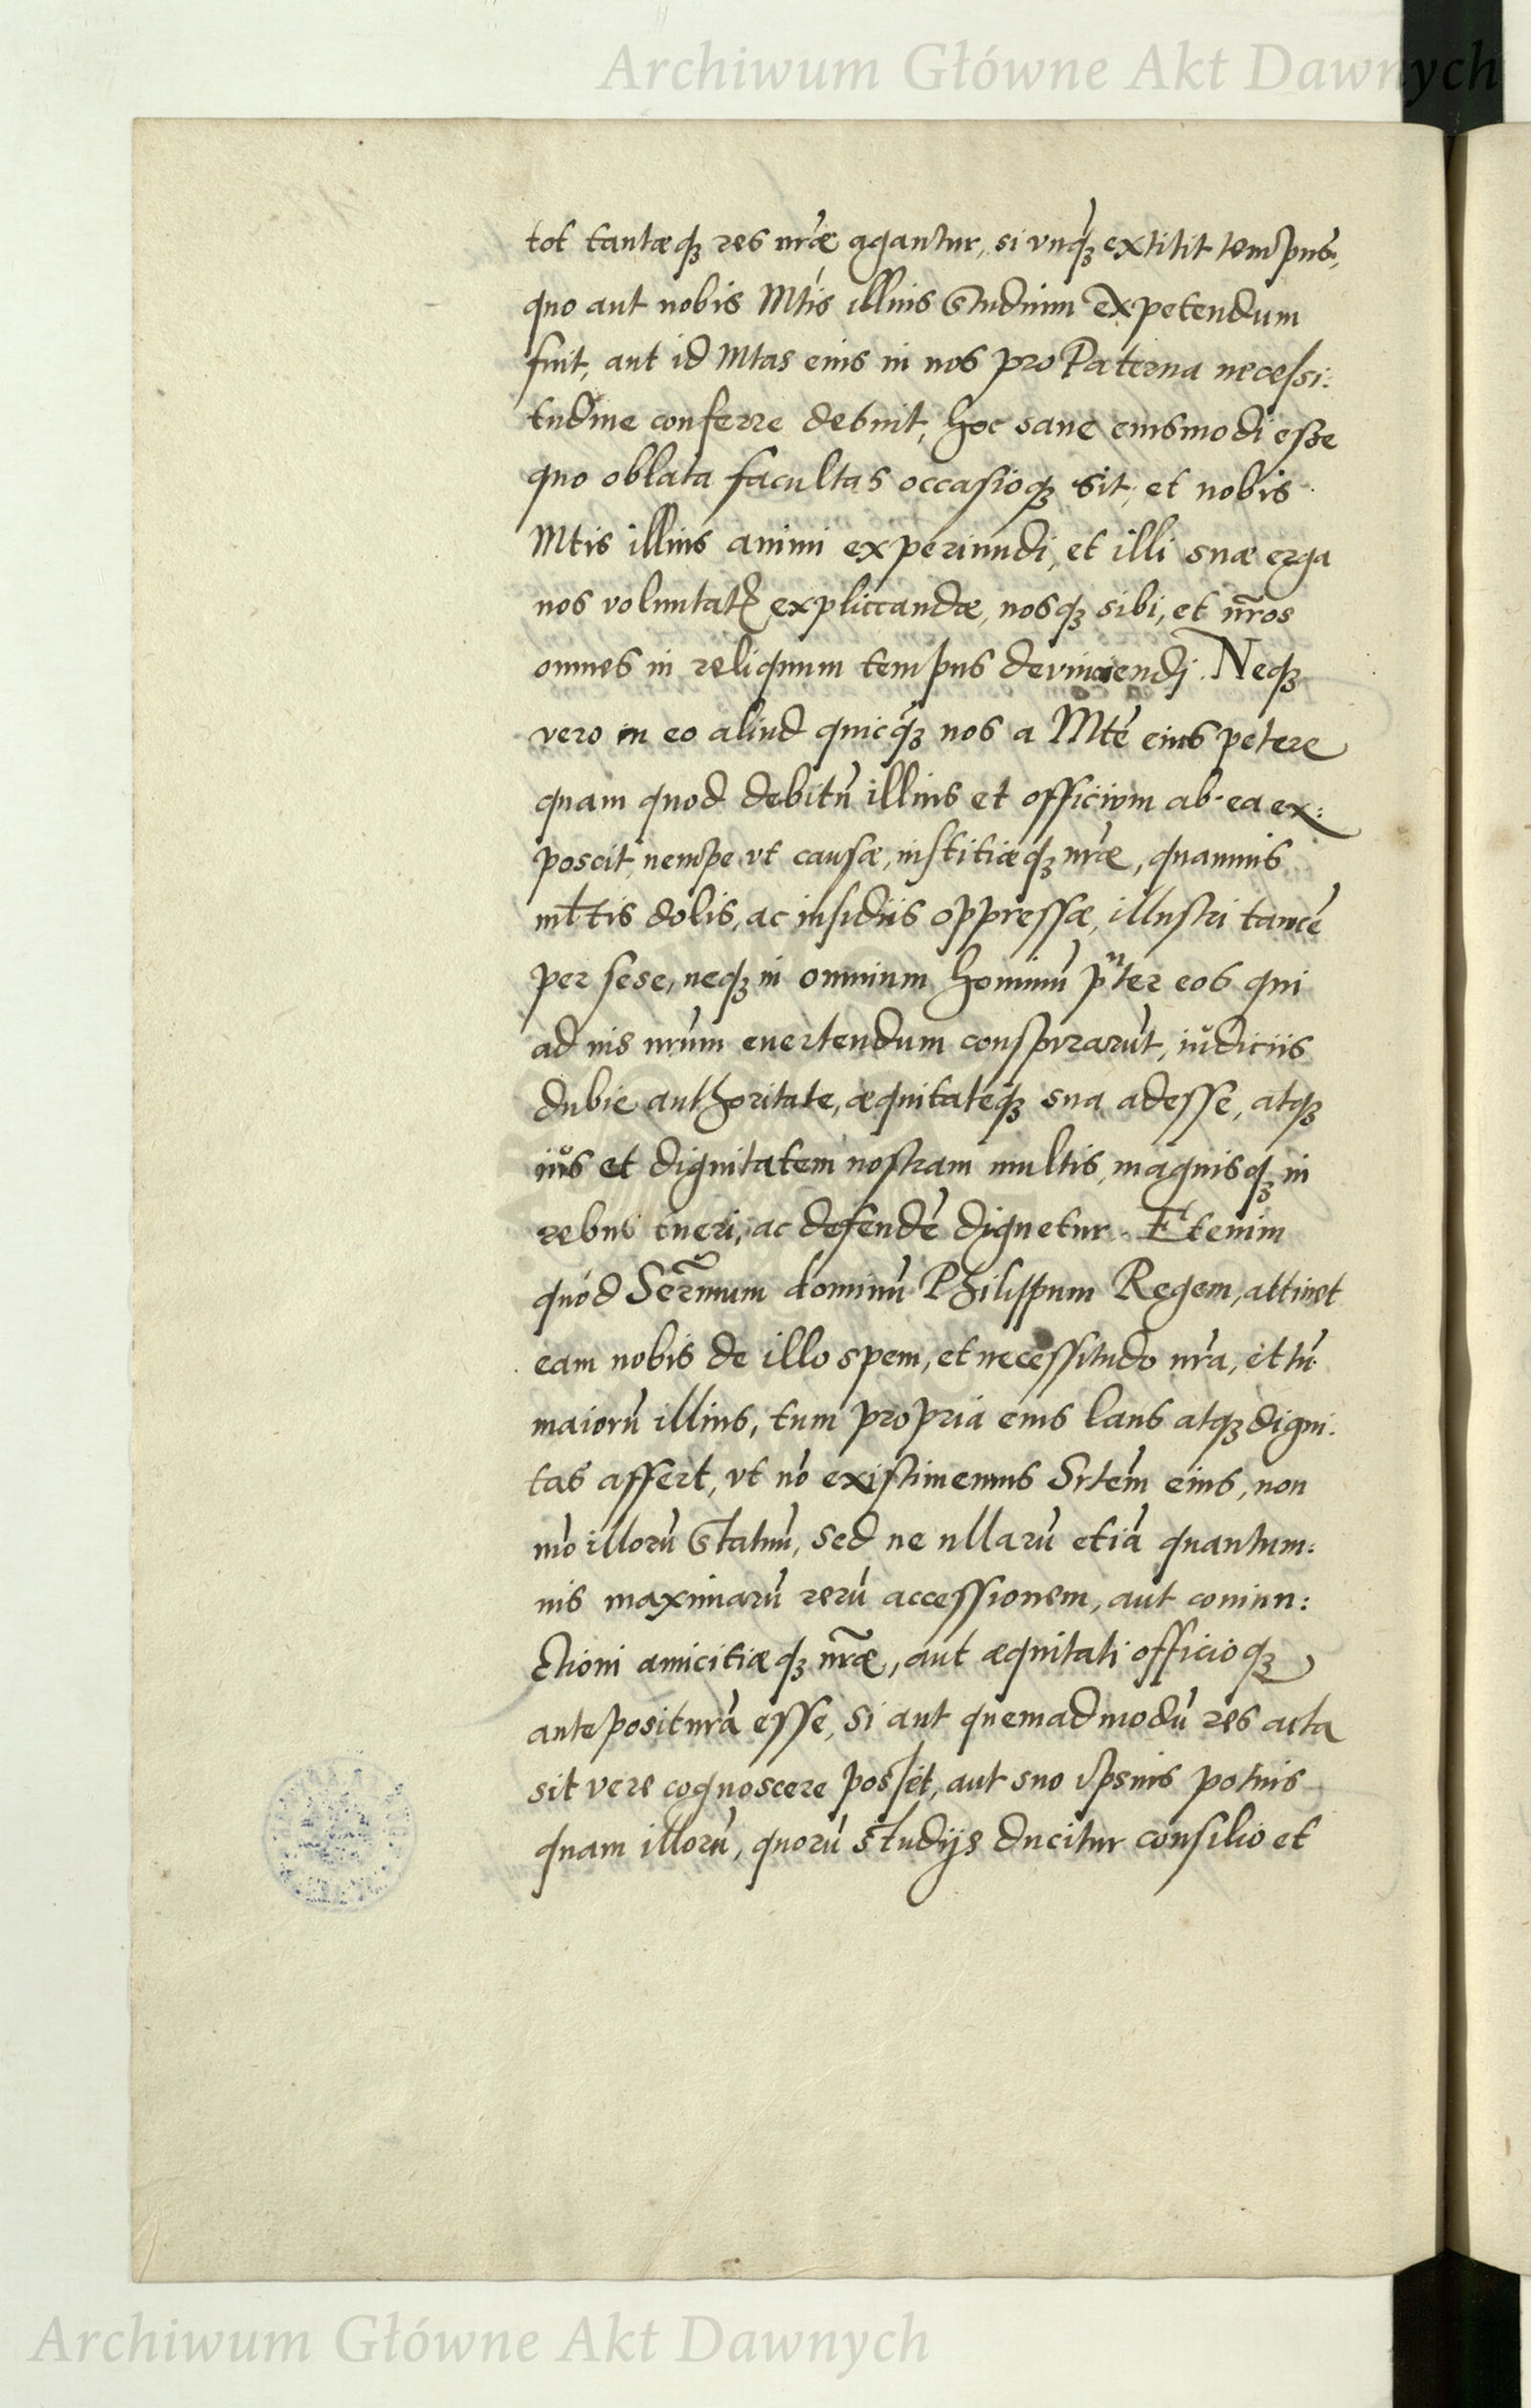 Archiwum Główne Akt Dawnych
tot tantæq₃ res nr̃æ agantur, si vnq̃₃ extitit tempus,
quo aut nobis Mtis illius studium expetendum
fuit, aut id Mtas eius in nos pro Paterna necessi:
tudine conferre debuit, hoc sane eiusmodi esse
quo oblata facultas occasioq₃ sit, et nobis
Mtis illius animi experiundi, et illi suæ erga
nos voluntatꝭ expliccandæ, nosq₃ sibi, et nr̃os
omnes in reliquum tempus devinciendi. Neq₃
vero in eo aliud quicq̃₃ nos a Mte eius petere
quam quod debitũ illius et officium ab ea ex:
poscit, nempe vt causæ, iustitiæq₃ nr̃æ, quamuis
mĺtis dolis, ac insidiis oppressæ, illustri tamẽ
per sese, neq₃ in omnium hominũ pñter eos qui
ad ius nr̃um euertendum conspirarũt, iudiciis
dubie authoritate, æquitateq₃ sua adesse, atq₃
ius et dignitatem nostram multis, magnisq₃ in
rebus tueri, ac defendẽ dignetur. Etenim
quod Serm̃um dominũ Philippum Regem, attinet
eam nobis de illo spem, et necessitudo nr̃a, et tũ
maiorũ illius, tum propria eius laus atq₃ digni:
tas affert, vt nõ existimemus Srtem eius, non
mõ illorũ statuũ, sed ne ullarũ etiã quantum:
uis maximarũ rerũ accessionem, aut coniun:
ctioni amicitiæq₃ nr̃æ, aut æquitati officioq₃
antepositurã esse, si aut quemadmodũ res acta
sit vere cognoscere posset, aut suo ipsius potius
quam illorũ, quorũ studijs ducitur consilio et
Archiwum Główne Akt Dawnych